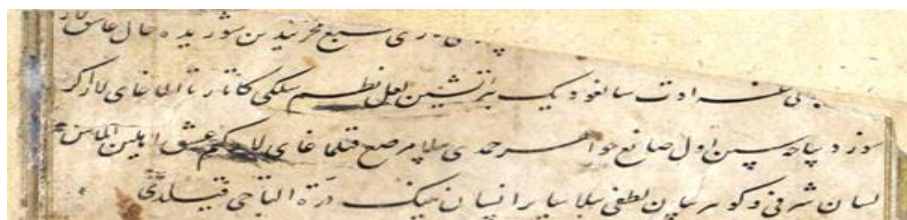 مخزنیدین شوریده حال عاشق لار
غرابت سالغودیک بیر آتشین لعل نظم سلکی کا تارتا الماغای لار اکر
سوز دیباجه سین اول صانع جواهر حمدی بیلا مرصع قیلماغای لار کیم عشق اهلین الماس
لسان شرفی و کوهر بیان لطفی بیلا سایر انسان نینک درة التاجی قیلدی